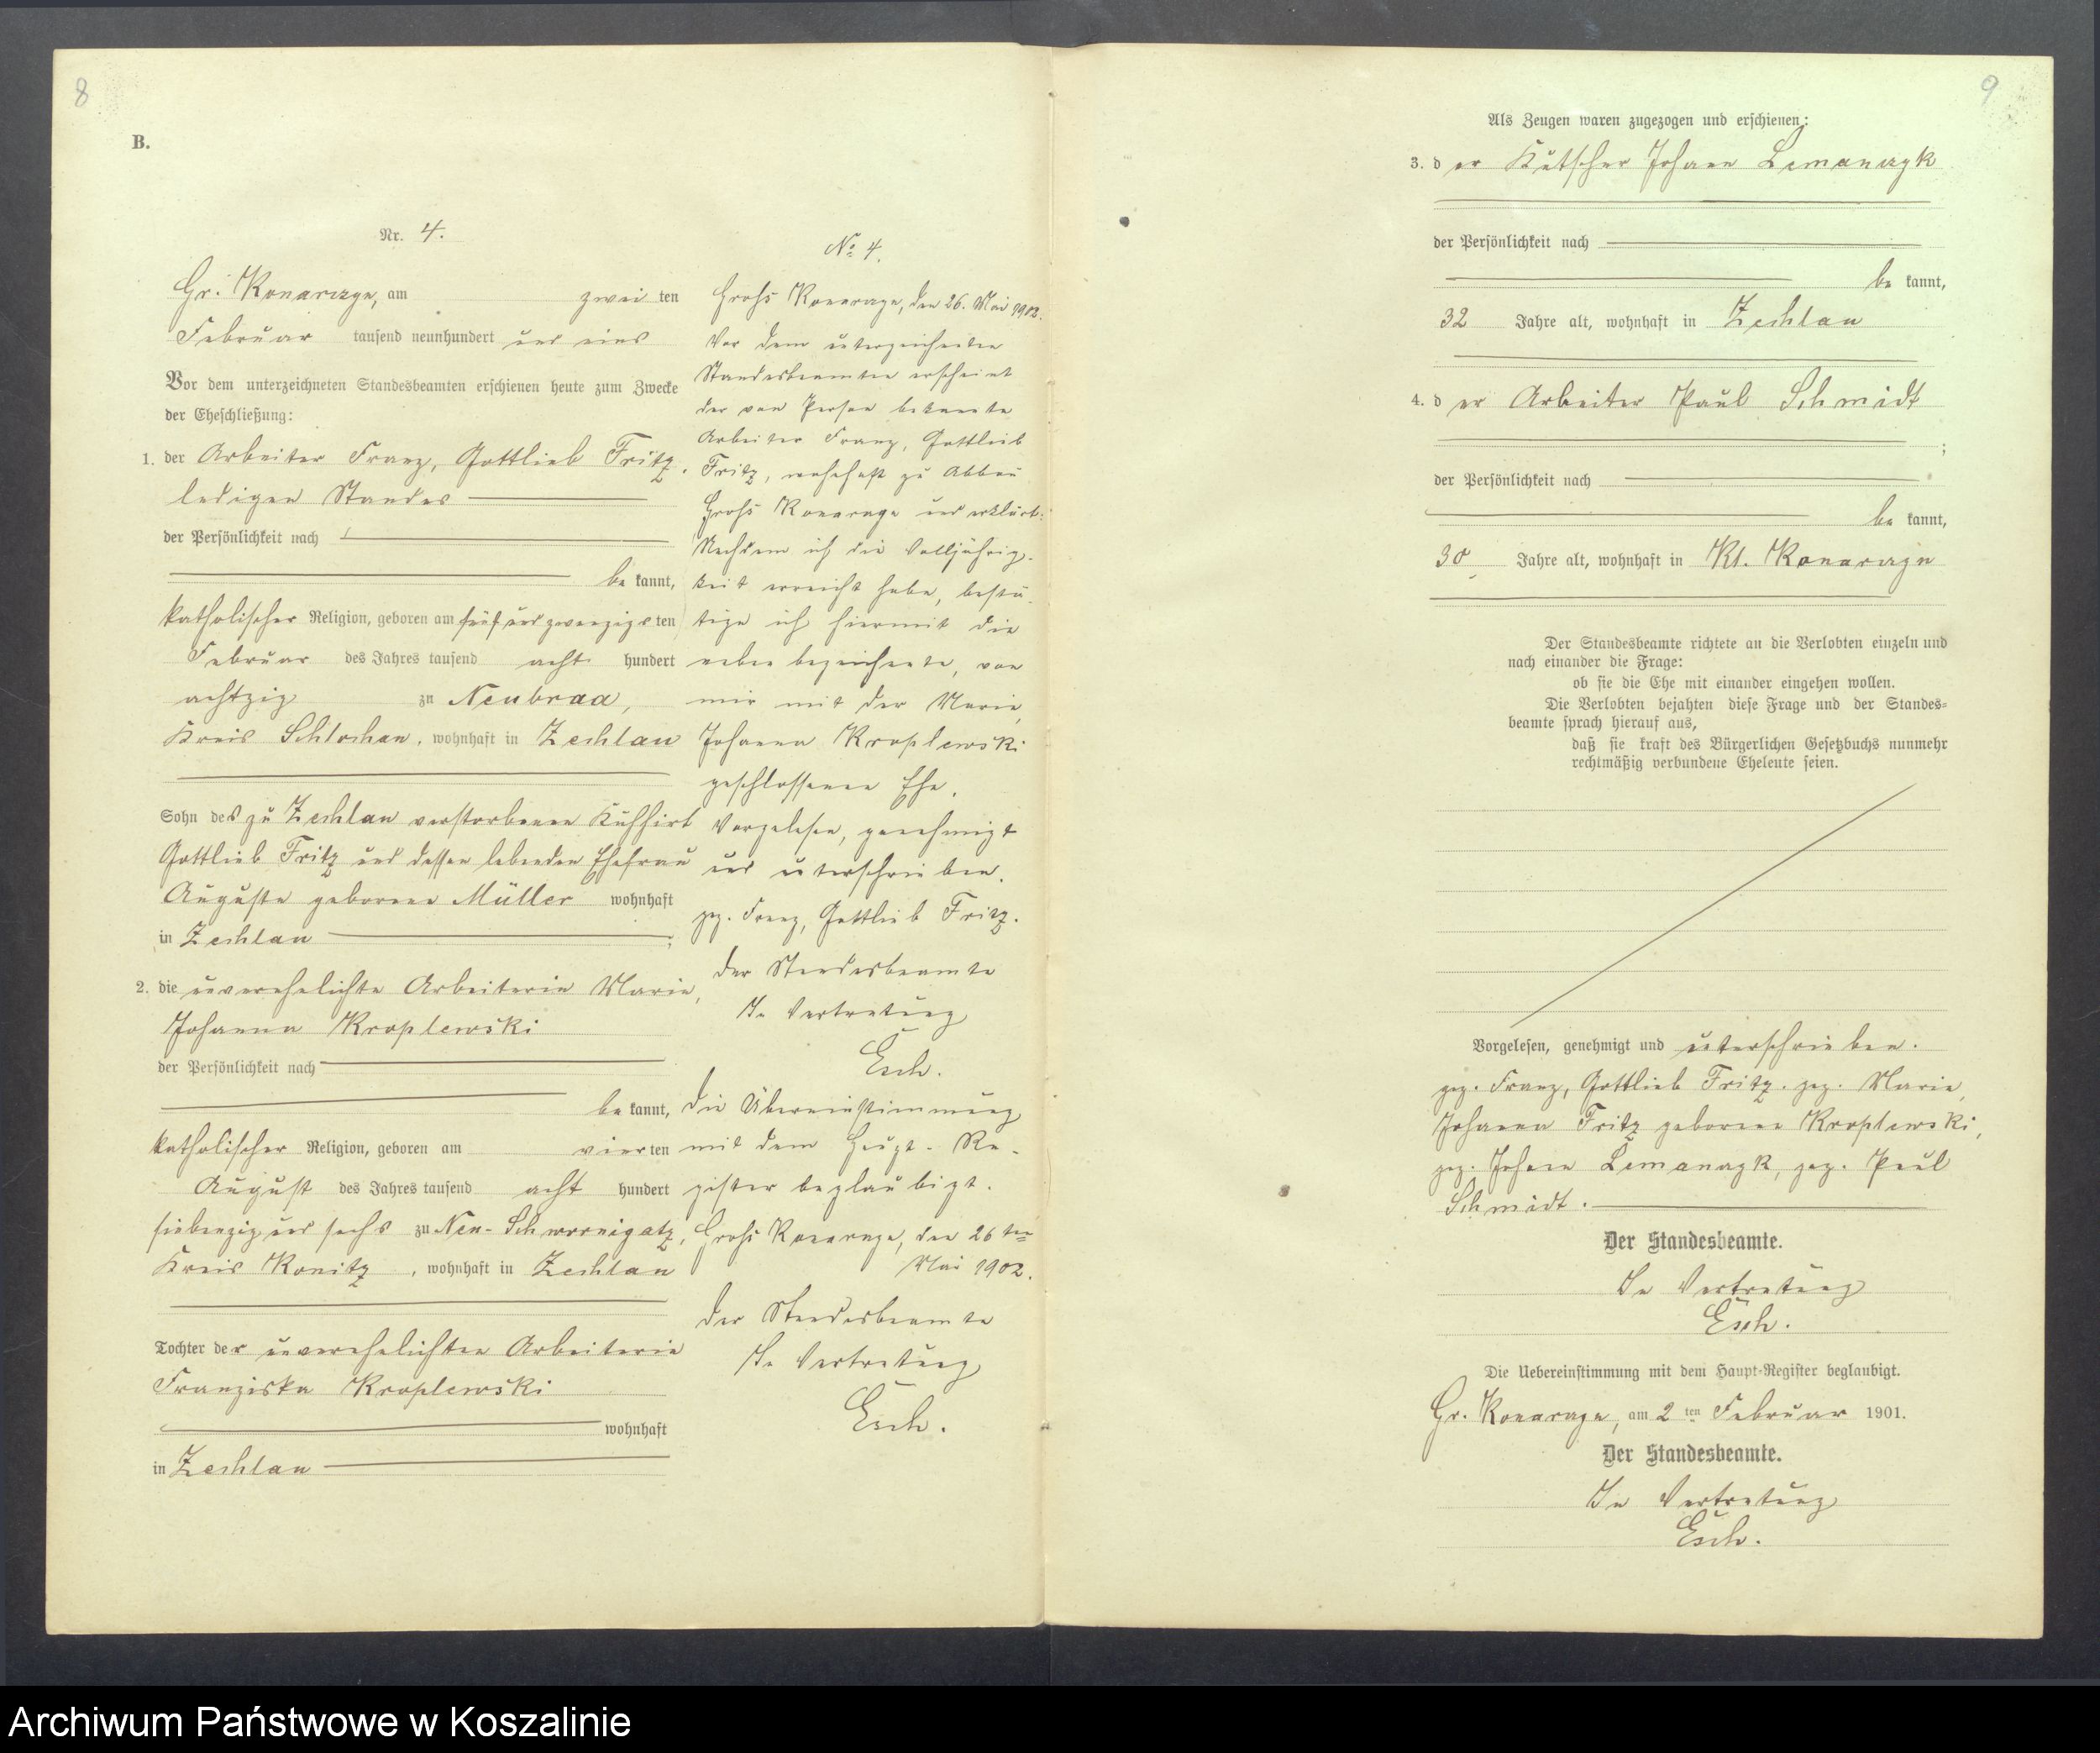 8
B.
Nr. 4.
Gr. Konarczyn, am zwei ten
Februar tausend neunhundert und eins
Vor dem unterzeichneten Standesbeamten erschienen heute zum Zwecke
der Eheschließung:
1. der Arbeiter Franz, Gottlieb Fritz,
ledigen Standes
der Persönlichkeit nach
be kannt,
katholischer Religion, geboren am fünf und zwanzigs ten
Februar des Jahres tausend acht hundert
achtzig zu Neubraa,
Kreis Schlochau, wohnhaft in Zechlau
Sohn des zu Zechlau verstorbenen Kuhhirt
Gottlieb Fritz und dessen lebenden Ehefrau
Auguste geborene Müller wohnhaft
in Zechlau ;
2. die unverehelichte Arbeiterin Marie,
Johanna Kroplewski
der Persönlichkeit nach
be kannt,
katholischer Religion, geboren am vier ten
August des Jahres tausend acht hundert
siebenzig und sechs zu Neu-Schwornigatz,
Kreis Konitz, wohnhaft in Zechlau
Tochter der unverehelichten Arbeiterin
Franziska Kroplewski
wohnhaft
in Zechlau
No 4.
Grohs Konarczyn, den 26. Mai 1902.
Vor dem unterzeichneten
Standesbeamten erscheint
der von Person bekannte
Arbeiter Franz, Gottlieb
Fritz, wohnhaft zu Abbau
Grohs Konarczyn und erklärt:
Nachdem ich die Volljährig-
keit erreicht habe, bestä-
tige ich hiermit die
neben bezeichnete, von
mir mit der Marie,
Johanna Kroplewski
geschlossene Ehe.
Vorgelesen, genehmigt
und unterschrieben.
gez. Franz, Gottlieb Fritz.
Der Standesbeamte
In Vertretung
Esch.
Die Übereinstimmung
mit dem Haupt-Re-
gister beglaubigt.
Grohs Konarczyn, den 26 ten
Mai 1902.
Der Standesbeamte
In Vertretung
Esch.
9
Als Zeugen waren zugezogen und erschienen:
3. d er Kutscher Johann Lemanczyk
der Persönlichkeit nach
be kannt,
32 Jahre alt, wohnhaft in Zechlau
4. d er Arbeiter Paul Schmidt
;
der Persönlichkeit nach
be kannt,
30 Jahre alt, wohnhaft in Kl. Konarczyn
Der Standesbeamte richtete an die Verlobten einzeln und
nach einander die Frage:
ob sie die Ehe mit einander eingehen wollen.
Die Verlobten bejahten diese Frage und der Standes=
beamte sprach hierauf aus,
daß sie kraft des Bürgerlichen Gesetzbuchs nunmehr
rechtmäßig verbundene Eheleute seien.
Vorgelesen, genehmigt und unterschrieben.
gez. Franz, Gottlieb Fritz. gez. Marie,
Johanna Fritz geborene Kroplewski,
gez. Johann Lemanczyk, gez. Paul
Schmidt.
Der Standesbeamte.
In Vertretung
Esch.
Die Uebereinstimmung mit dem Haupt-Register beglaubigt.
Gr. Konarczyn, am 2 ten Februar 1901.
Der Standesbeamte.
In Vertretung
Esch.
Archiwum Państwowe w Koszalinie